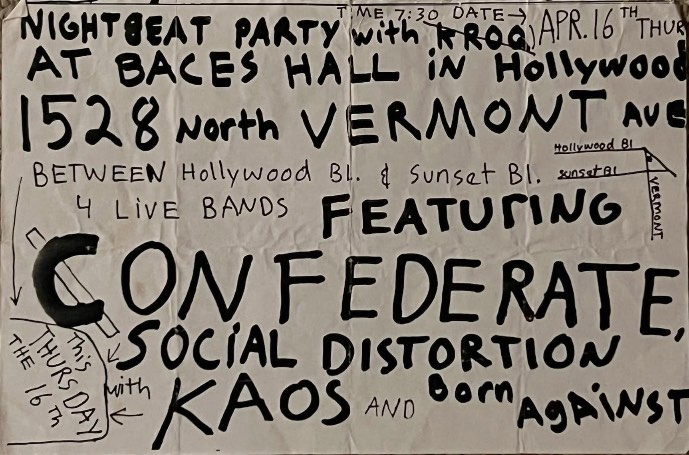 TIME 7:30 DATE→ APR. 16TH THUR
NIGHTBEAT PARTY with KROQ
AT BACES HALL iN Hollywood
1528 North VERMONT AVE
BETWEEN Hollywood Bl. & Sunset Bl.
Hollywood Bl
sunset Bl
VERMONT
4 LiVE BANDS FEATURiNG
CONFEDERATE,
SOCiAL DISTORTION
with KAOS AND Born AgAiNST
This
THURSDAY
THE 16TH